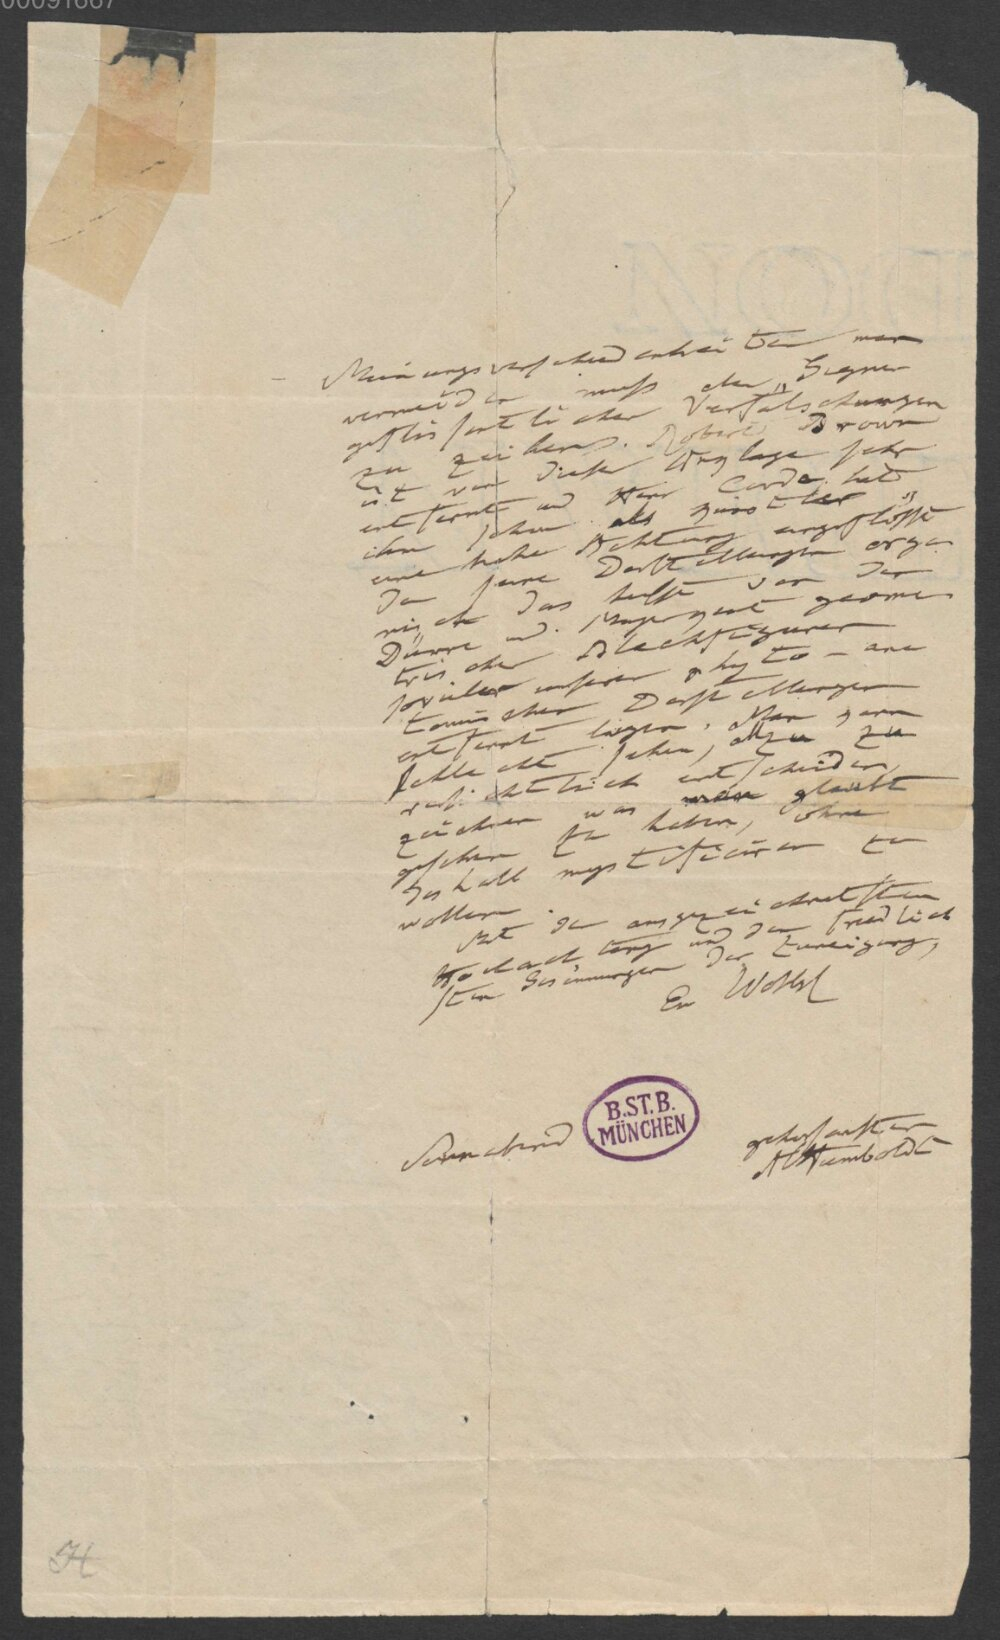 00091667
Meinungsverschiedenheiten man
vermeiden muß den Gegner
geflissentlicher Verfälschungen
zu zeihen. Robert Brown
ist von dieser Anklage sehr
entfernt und Herr Corda hat
ihm schon als Künstler
eine hohe Achtung eingeflößt
da seine Darstellungen orga
nisch das heißt von der
Dürre und Magerkeit geome
trischer Blechfiguren
vieler unserer phyto-ana
tomischen Darstellungen
entfernt liegen. Man kann
schlecht sehen, allzu zu
versichtlich entscheiden,
zeichnen was man glaubt
gesehen zu haben, ohne
deshalb mystificiren zu
wollen.
Mit der ausgezeichnetsten
Hochachtung und den friedlich
sten Gesinnungen der Zuneigung,
Ew Wohlgb
B.ST.B.
MÜNCHEN
Sonnabend
gehorsamster
AlHumboldt
H